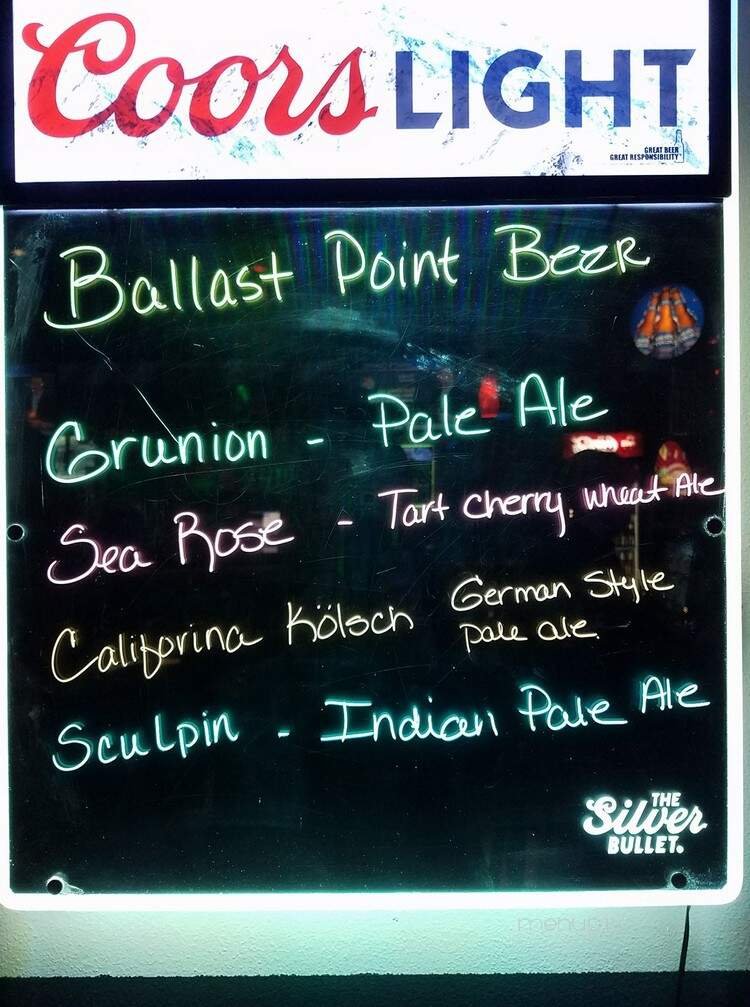 Coors LIGHT
GREAT BEER
GREAT RESPONSIBILITY
Ballast Point Beer
Grunion - Pale Ale
Sea Rose - Tart cherry wheat Ale
Califorina Kölsch German Style
pale ale
Sculpin - Indian Pale Ale
THE
Silver
BULLET.